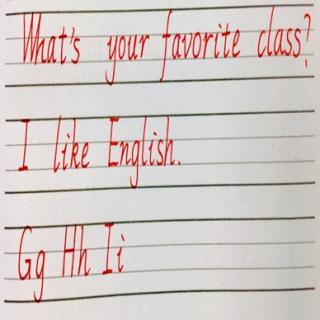 What's your favorite class?
I like English.
Gg Hh Ii